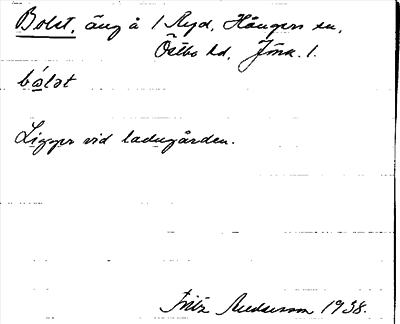 Bolet, äng å 1 Ryd, Hångers sn,
Östbo hd, Jönk. l.
bólət
Ligger vid ladugården.
Fritz Andersson 1938.